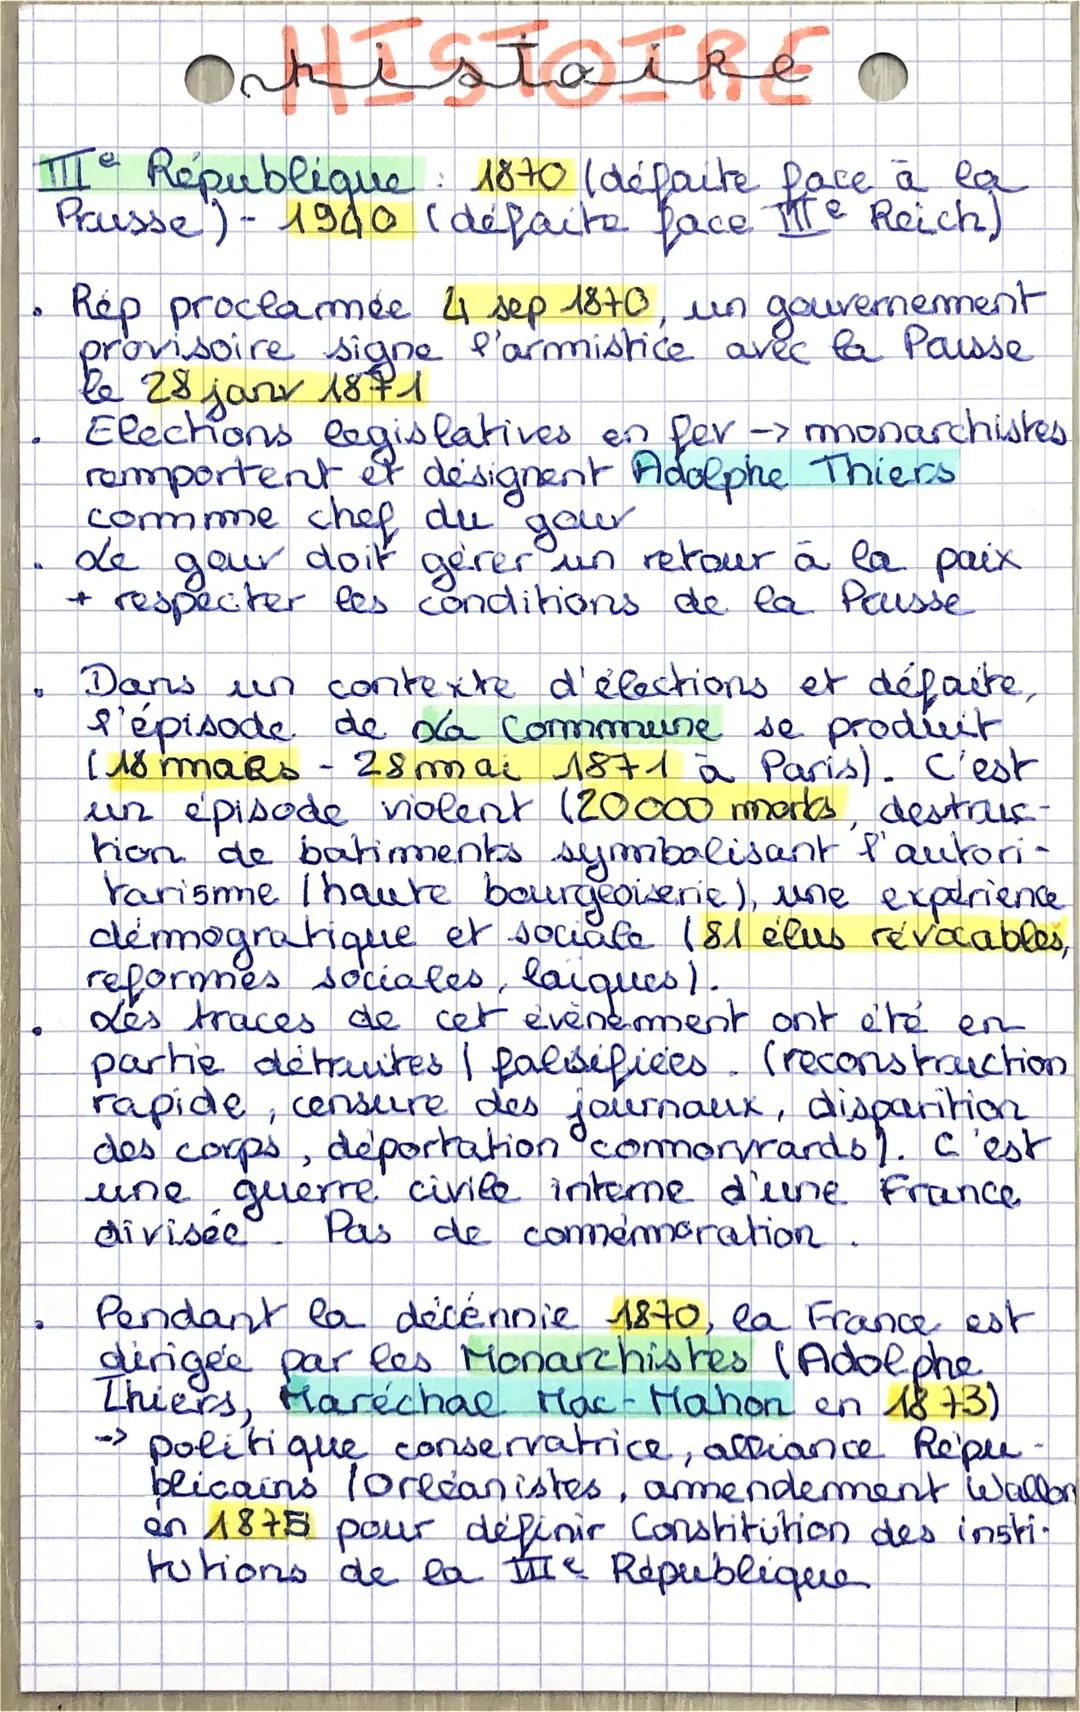 HISTOIRE
histoire
IIIe République : 1870 (défaite face à la
Prusse) - 1940 (défaite face IIIe Reich)
. Rép proclamée 4 sep 1870, un gouvernement
provisoire signe l'armistice avec la Prusse
le 28 janv 1871
. Elections législatives en fev -> monarchistes
remportent et désignent Adolphe Thiers
comme chef du gouv
. Le gouv doit gérer un retour à la paix
+ respecter les conditions de la Prusse
. Dans un contexte d'élections et défaite,
l'épisode de La Commune se produit
(18 mars - 28 mai 1871 à Paris). C'est
un épisode violent (20 000 morts, destruc-
tion de batiments symbolisant l'autori-
tarisme / haute bourgeoiserie), une expérience
démogratique et sociale (81 élus révocables,
réformes sociales, laïques).
. Les traces de cet évènement ont été en
partie détruites / falsifiées. (reconstruction
rapide, censure des journaux, disparition
des corps, déportation commonrards). C'est
une guerre civile interne d'une France
divisée. Pas de commémoration.
. Pendant la décénnie 1870, la France est
dirigée par les Monarchistes (Adolphe
Thiers, Maréchal Mac-Mahon en 1873)
-> politique conservatrice, alliance Répu-
blicains / Orléanistes, amendement Wallon
en 1875 pour définir Constitution des insti-
tutions de la IIIe République